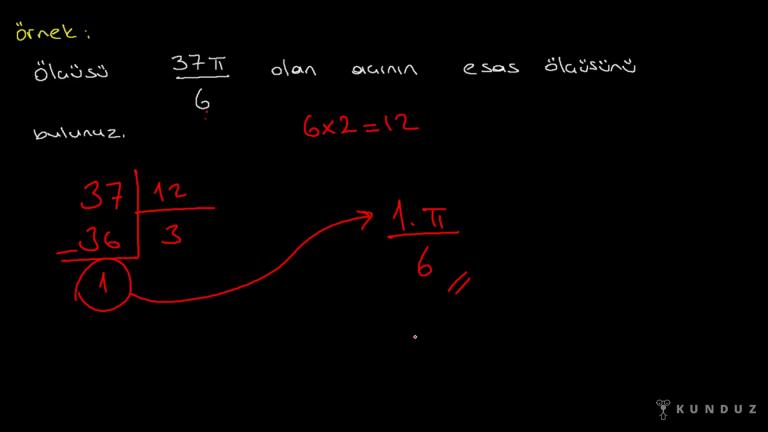 örnek:
Ölçüsü 37π/6 olan açının esas ölçüsünü
bulunuz.
6x2=12
37 | 12
-36 | 3
1
1.π/6
KUNDUZ